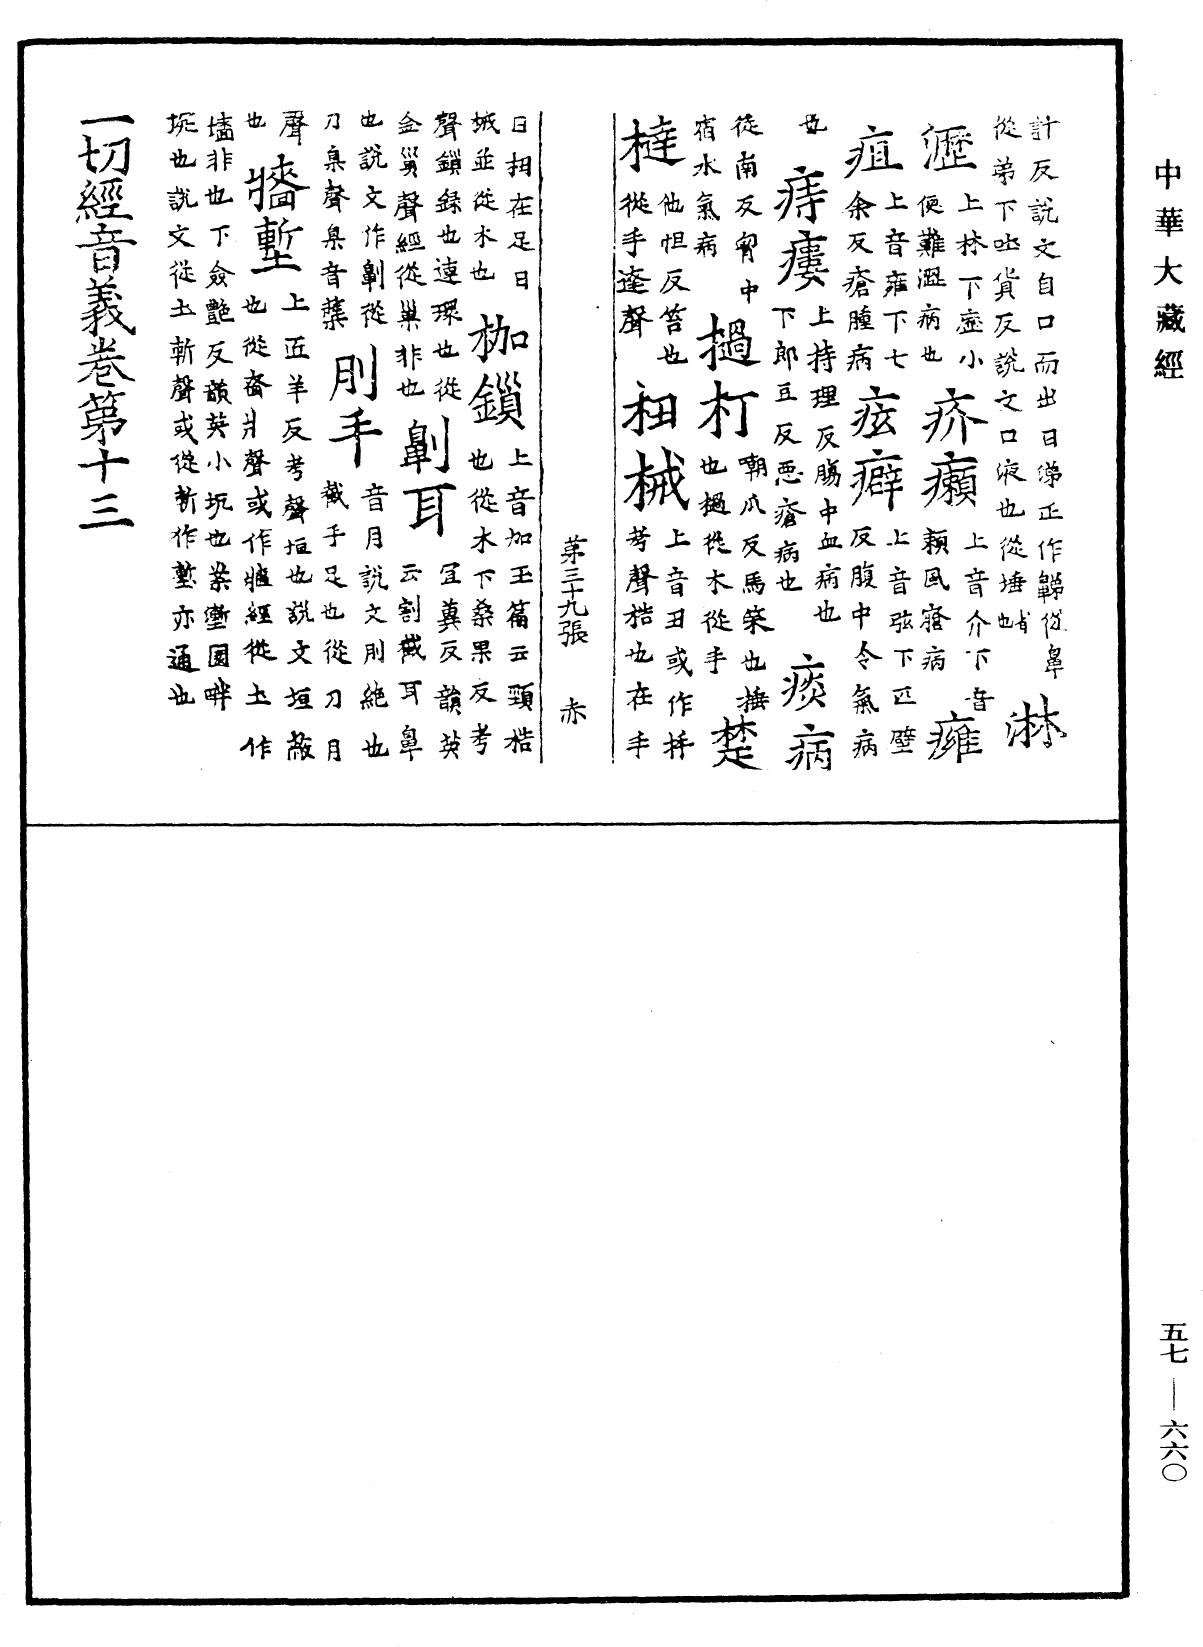 中華大藏經
計反說文自口而出曰涕正作𪖂從鼻
從弟下吐貨反說文口液也從唾省 淋
瀝 上林下歷小便難澀病也 疥癩 上音介下音賴風瘡病 癰
疽 上音雍下七余反瘡腫病 痃癖 上音弦下匹壁反腹中令氣病
也 痔瘻 上持理反腸中血病也下郎豆反惡瘡病也 痰病
徒南反胷中宿水氣病 撾打 嘲瓜反馬策也捶也檛從木從手 楚
撻 他怛反笞也從手達聲 杻械 上音丑或作㭏考聲梏也在手
第三十九張 赤
曰杻在足曰械並從木也 枷鎖 上音加玉篇云頸梏也從木下桑果反考
聲鎖錄也連環也從金𧴪聲經從巢非也 劓耳 冝兾反韻英云割截耳鼻
也說文作劓從刀臬聲臬音孽 刖手 音月說文刖絕也截手足也從刀月
聲 牆壍 上匠羊反考聲垣也說文垣蔽也從嗇爿聲或作牆經從土作
墻非也下僉豔反韻英小坑也案壍圍畔
坑也說文從土斬聲或從漸作壍亦通也
一切經音義卷第十三
五七—六六〇